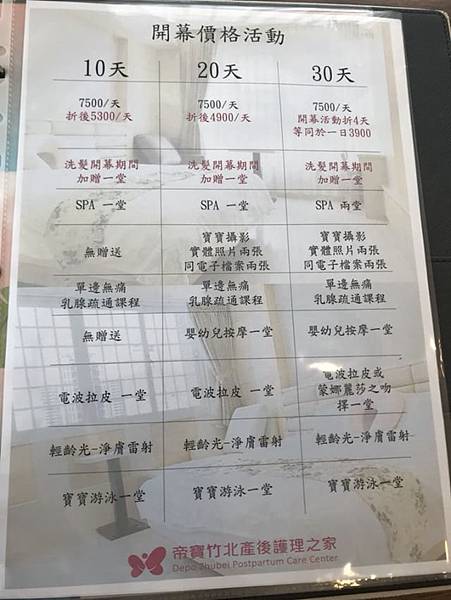 開幕價格活動
10天 20天 30天
7500/天 7500/天 7500/天
折後5300/天 折後4900/天 開幕活動折4天
等同於一日3900
洗髮開幕期間 洗髮開幕期間 洗髮開幕期間
加贈一堂 加贈一堂 加贈一堂
SPA 一堂 SPA 一堂 SPA 兩堂
無贈送 寶寶攝影 寶寶攝影
實體照片兩張 實體照片兩張
同電子檔案兩張 同電子檔案兩張
單邊無痛 單邊無痛 單邊無痛
乳腺疏通課程 乳腺疏通課程 乳腺疏通課程
無贈送 嬰幼兒按摩一堂 嬰幼兒按摩一堂
電波拉皮 一堂 電波拉皮 一堂 電波拉皮或
蒙娜麗莎之吻
擇一堂
輕齡光-淨膚雷射 輕齡光-淨膚雷射 輕齡光-淨膚雷射
寶寶游泳一堂 寶寶游泳一堂 寶寶游泳一堂
帝寶竹北產後護理之家
Depo Zhubei Postpartum Care Center